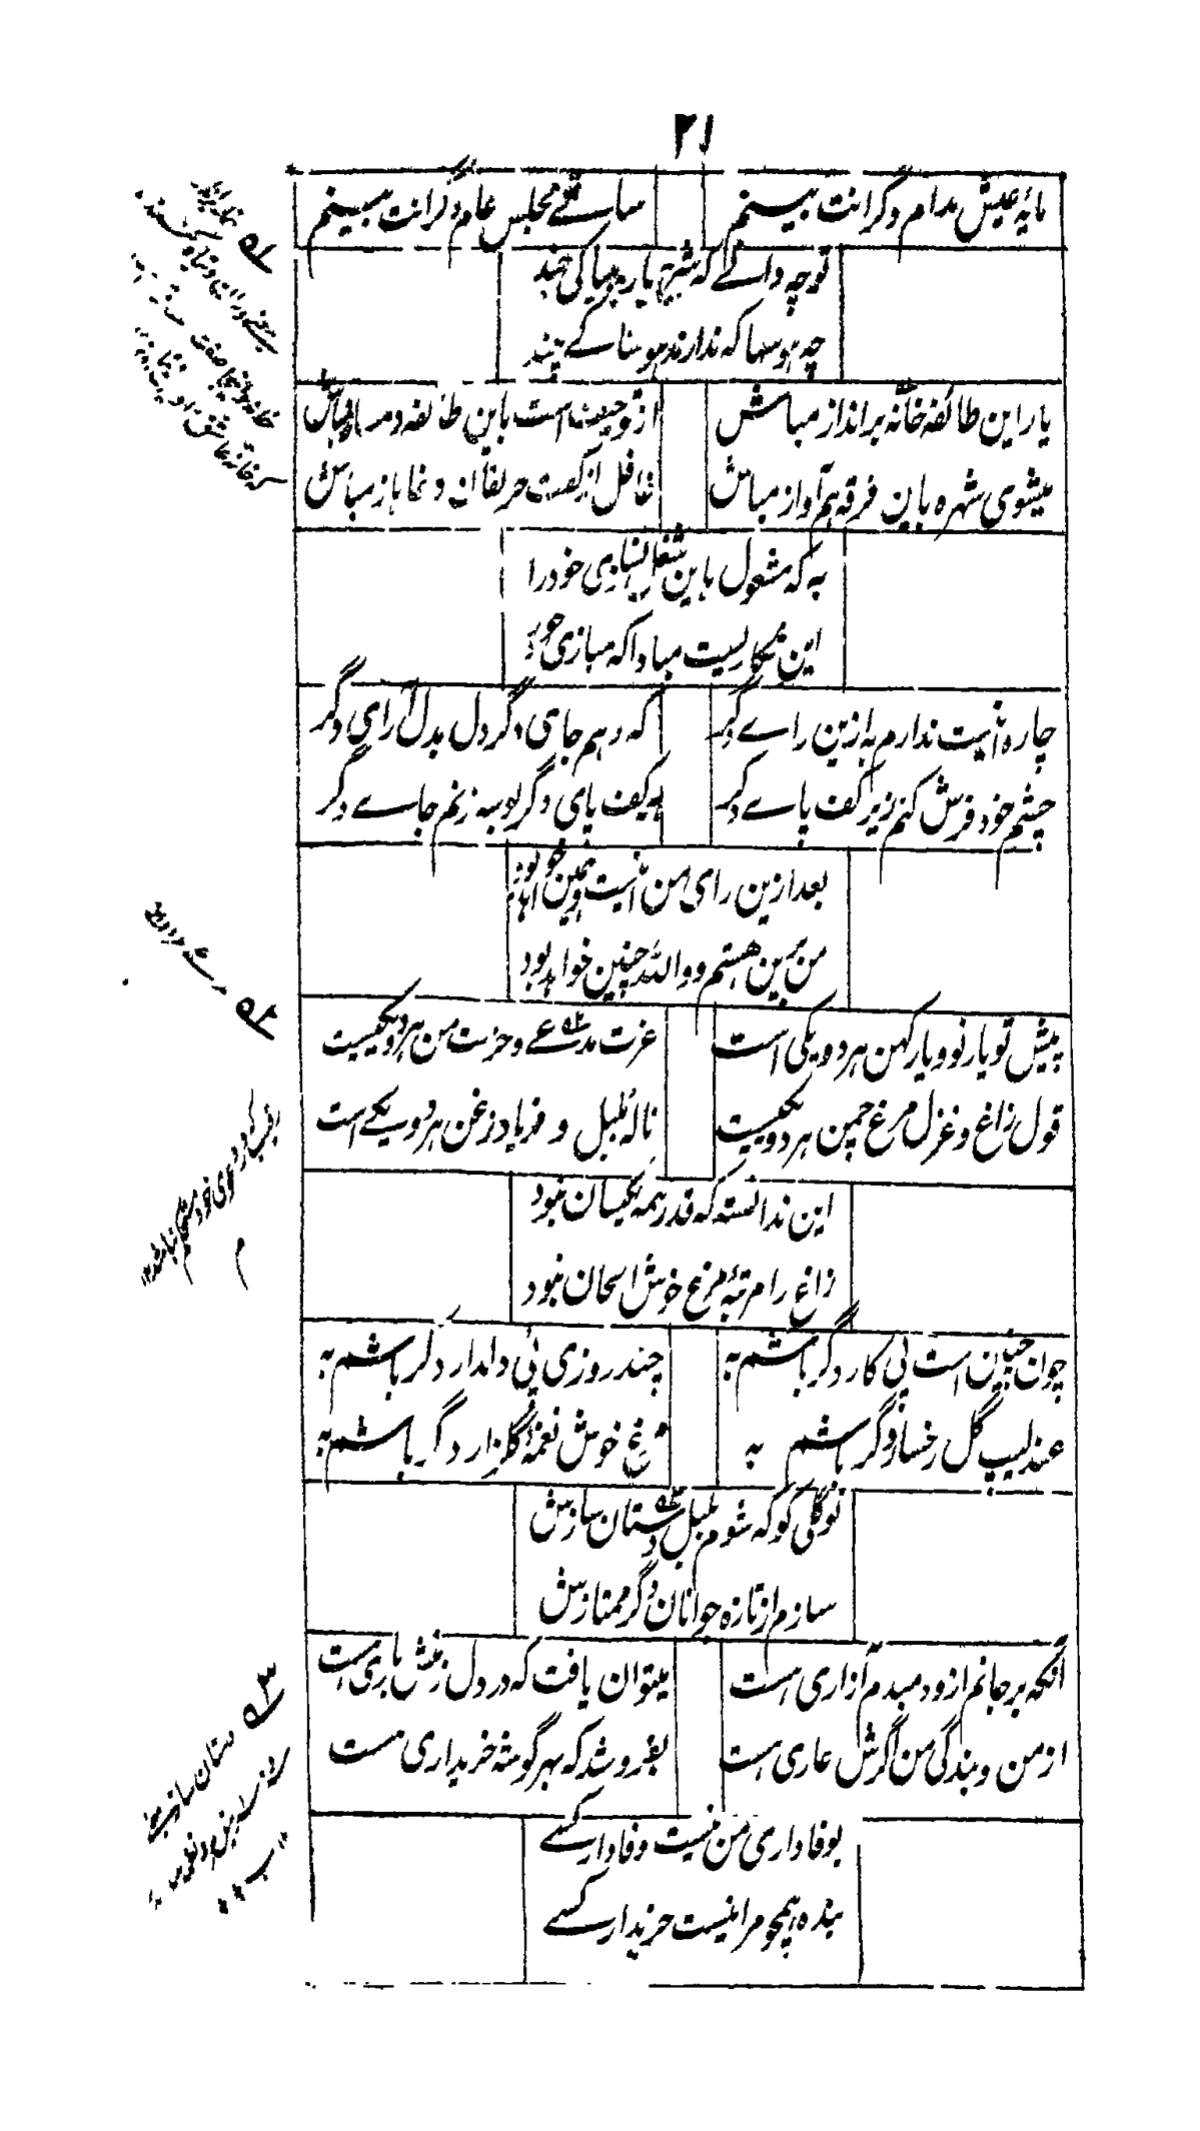 ۲۱
مایهٔ عیش مدام دگرانت بینم
ساقی مجلس عام دگرانت بینم
تو چه دانی که شدی یار چه بیباکی چند
چه هوسها که ندارند هوسناکی چند
یار این طائفه خانه برانداز مباش
از تو حیف است باین طائفه دمساز مباش
میشوی شهره باین فرقه هم آواز مباش
غافل از کعبت حریفان دغا باز مباش
به که مشغول باین شغل نسازی خود را
این نه کاریست مبادا که ببازی خود را
چاره اینست ندارم به ازین رای دگر
که دهم جای دگر دل بدل آرای دگر
چشم خود فرش کنم زیر کف پای دگر
بر کف پای دگر بوسه زنم جای دگر
بعد ازین رای من اینست و همین خواهد بود
من برین هستم و والله چنین خواهد بود
پیش تو یار نو و یار کهن هر دو یکی است
عزت مدعی و حزت من هر دو یکیست
قول زاغ و غزل مرغ چمن هر دو یکیست
نالهٔ بلبل و فریاد زغن هر دو یکی است
این ندانسته که قدر همه یکسان نبود
زاغ را مرتبهٔ مرغ خوش الحان نبود
چون چنین است پی کار دگر باشم به
چند روزی پی دلدار دگر باشم به
عندلیب گل رخسار دگر باشم به
مرغ خوش نغمهٔ گلزار دگر باشم به
نوگلی کو که شوم بلبل دستان سازش
سازم از تازه جوانان دگر ممتازش
آنکه بر جانم ازو دمبدم آزاری هست
میتوان یافت که در دل زمنش باری هست
از من و بندگی من اگرش عاری هست
بفروشد که بهر گوشه خریداری هست
بوفاداری من نیست وفادار کسی
بنده همچو مرا نیست خریدار کسی
رقیب که در دعوی خود مستحکم نباشد
م
دستان ساز